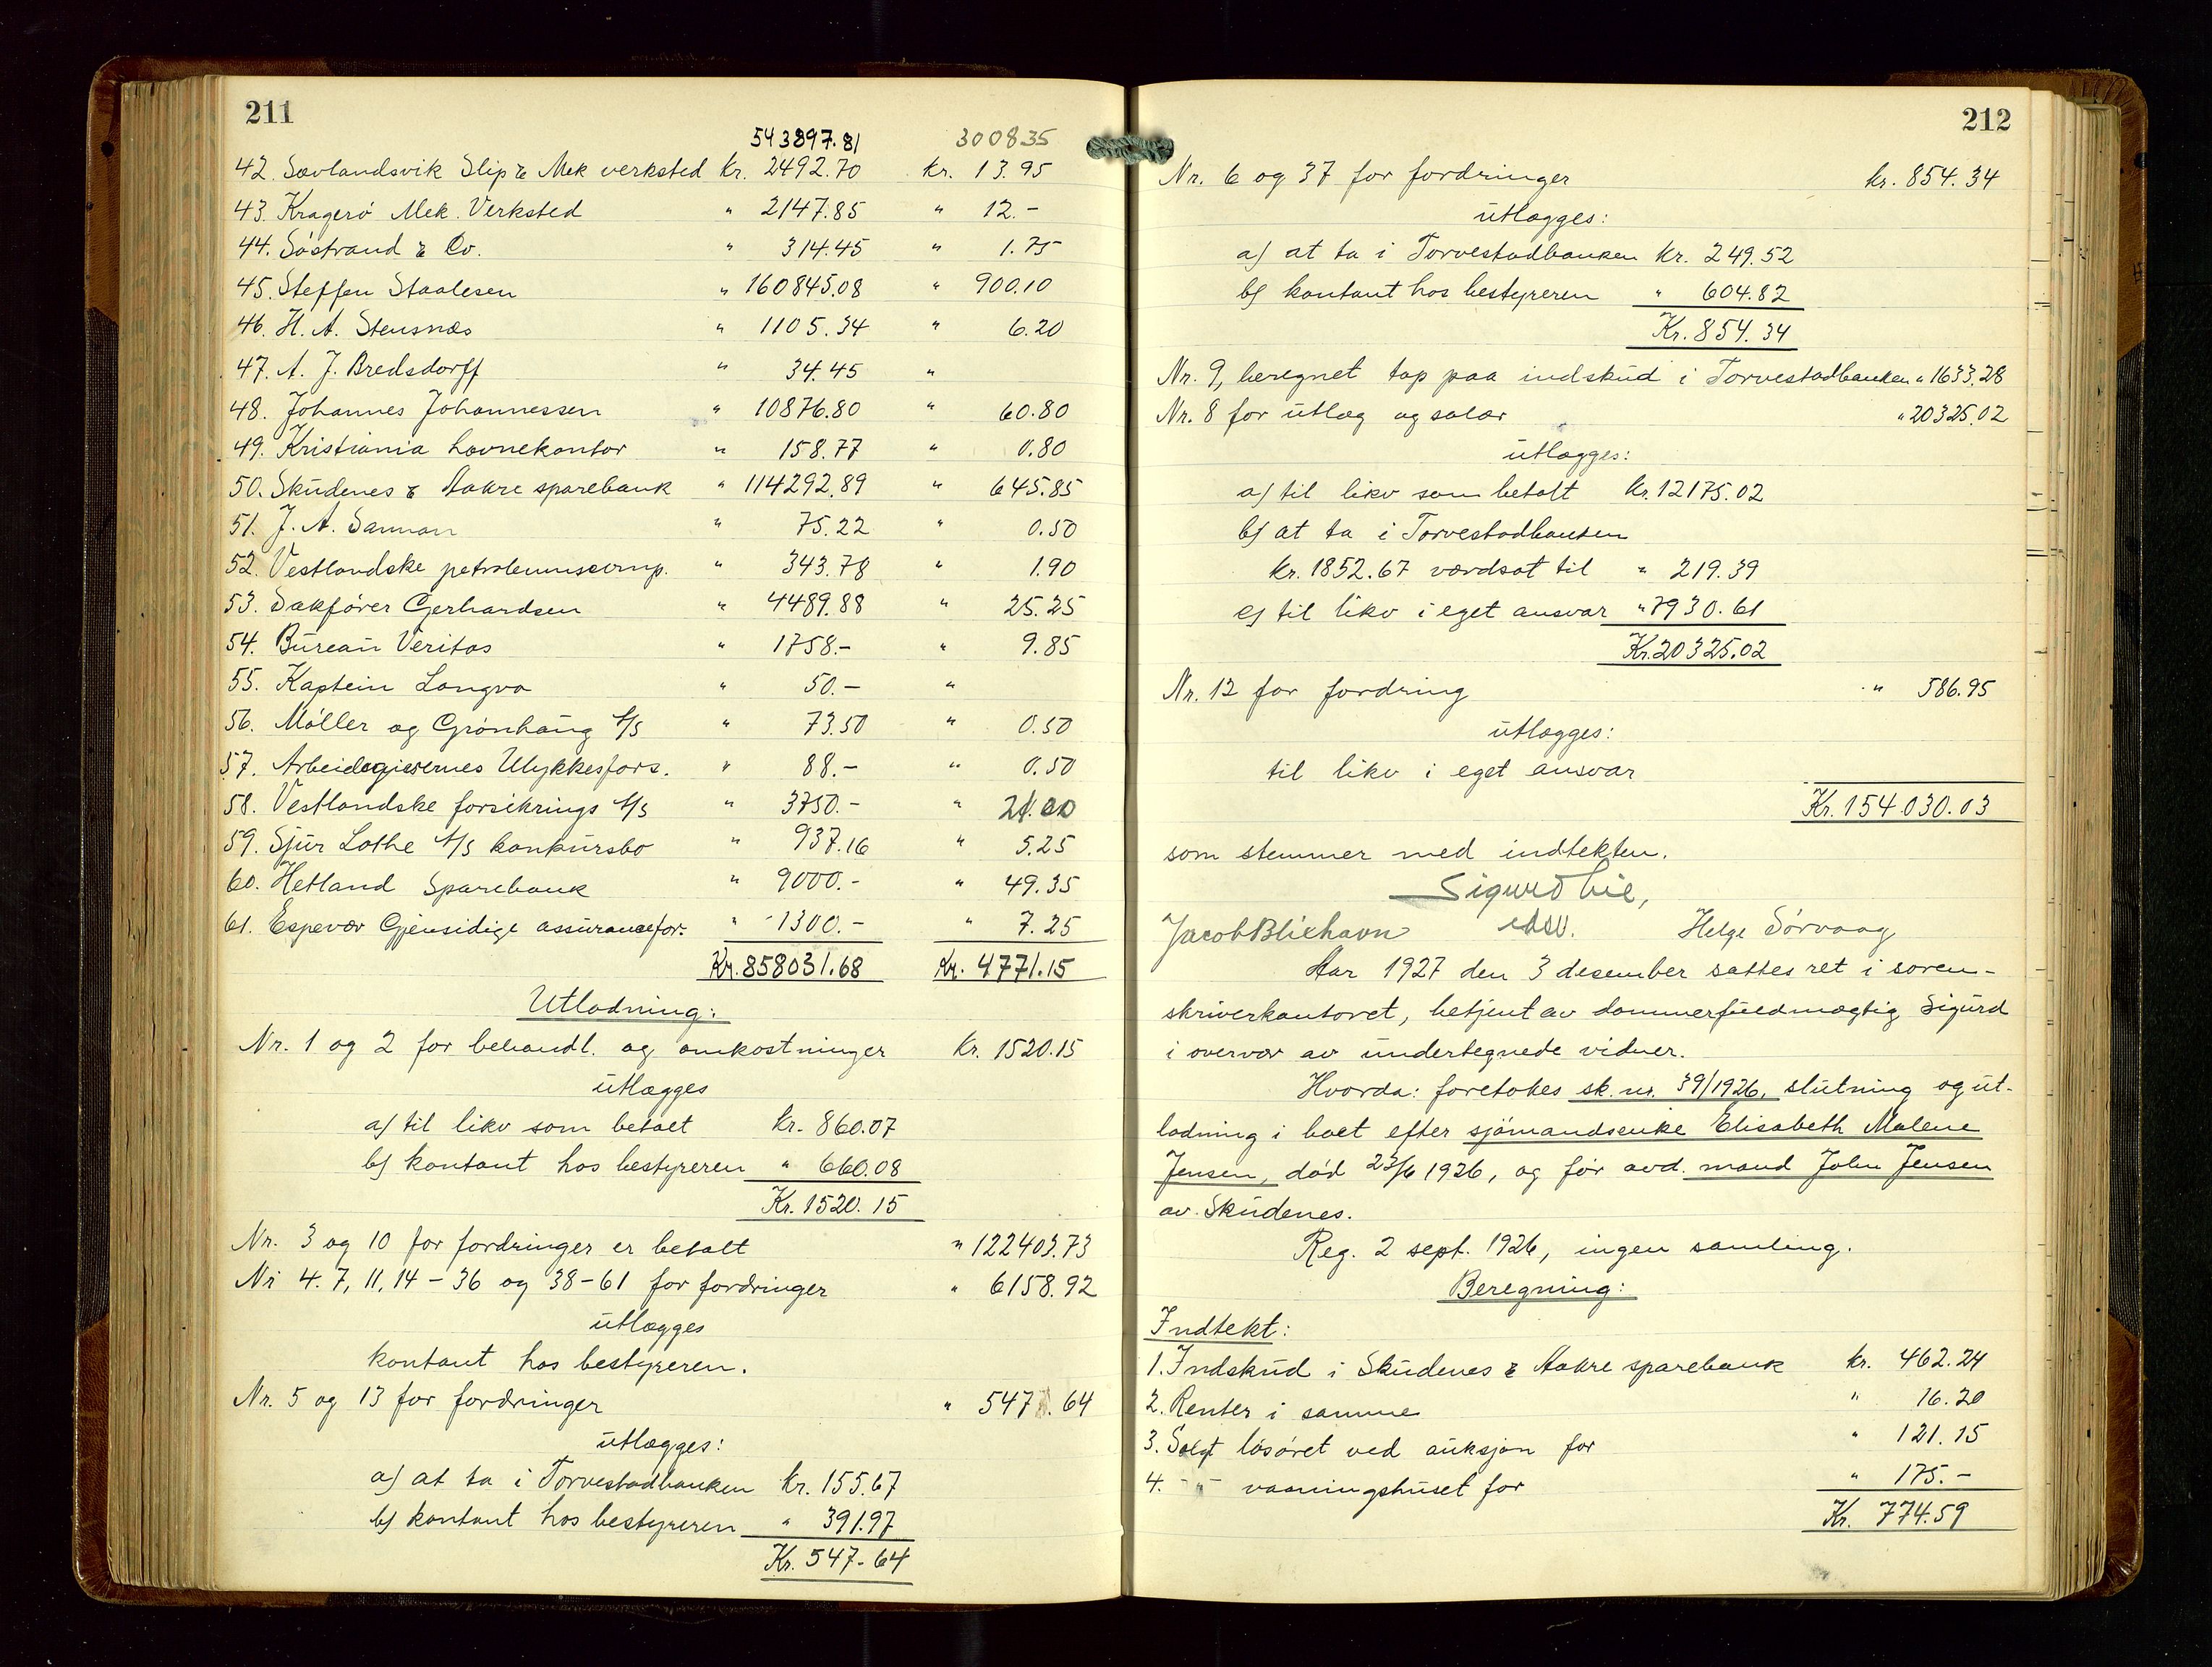 211
543897.81 300835
42. Sævlandsvik Slip & Mek verksted Kr. 2492.70 Kr. 13.95
43. Kragerö Mek. Verksted " 2147.85 " 12.-
44. Söstrand & Co. " 314.45 " 1.75
45. Steffen Staalesen " 160845.08 " 900.10
46. H. A. Stensnæs " 1105.34 " 6.20
47. A. J. Bredsdorff " 34.45 "
48. Johannes Johannessen " 10876.80 " 60.80
49. Kristiania havnekontor " 158.77 " 0.80
50. Skudenes & Aakre sparebank " 114292.89 " 645.85
51. J. A. Samman " 75.22 " 0.50
52. Vestlandske petroleumscomp. " 343.78 " 1.90
53. Sakförer Gerhardsen " 4489.88 " 25.25
54. Bureau Veritas " 1758.- " 9.85
55. Kaptein Langva " 50.- "
56. Möller og Grönhaug A/S " 73.50 " 0.50
57. Arbeidsgivernes Ulykkesfors. " 88.- " 0.50
58. Vestlandske forsikrings A/S " 3750.- " 21.00
59. Sjur Lothe A/S konkursbo " 937.16 " 5.25
60. Hetland Sparebank " 9000.- " 49.35
61. Espevær Gjensidige assuransefor. " 1300.- " 7.25
Kr. 858031.68 Kr. 4771.15
Utlodning:
Nr. 1 og 2 for behandl. og omkostninger Kr. 1520.15
utlægges
a) til likv som betalt Kr. 860.07
b) kontant hos bestyreren " 660.08
Kr. 1520.15
Nr. 3 og 10 for fordringer er betalt " 122403.73
Nr 4. 7, 11, 14 - 36 og 38-61 for fordringer " 6158.92
utlægges
kontant hos bestyreren.
Nr. 5 og 13 for fordringer " 547.64
utlægges:
a) at ta i Torvestadbanken Kr. 155.67
b) kontant hos bestyreren " 391.97
Kr. 547.64
212
Nr. 6 og 37 for fordringer kr. 854.34
utlægges:
a) at ta i Torvestadbanken Kr. 249.52
b) kontant hos bestyreren " 604.82
Kr. 854.34
Nr. 9, beregnet tap paa indskud i Torvestadbanken " 1633.28
Nr. 8 for utlæg og salær " 20325.02
utlægges:
a) til likv som betalt Kr. 12175.02
b) at ta i Torvestadbanken
kr. 1852.67 værdsat til " 219.39
c) til likv i eget ansvar " 7930.61
Kr. 20325.02
Nr. 12 for fordring " 586.95
utlægges:
til likv i eget ansvar
Kr. 154.030.03
som stemmer med indtekten.
Sigurd Lie,
Jacob Blikhavn edsv. Helge Sörvaag
Aar 1927 den 3 desember sattes ret i soren-
skriverkontoret, betjent av dommerfuldmægtig Sigurd
i overvær av undertegnede vidner.
Hvorda: foretokes sk. nr. 39/1926, slutning og ut-
lodning i boet efter sjömandsenke Elisabeth Malene
Jensen, död 23/6 1926, og för avd. mand John Jensen
av Skudenes.
Reg. 2 sept. 1926, ingen samling.
Beregning:
Indtekt:
1. Indskud i Skudenes & Aakre sparebank kr. 462.24
2. Renter i samme " 16.20
3. Solgt lösöret ved auksjon for " 121.15
4. - " - vaaningshuset for " 175.-
Kr. 774.59